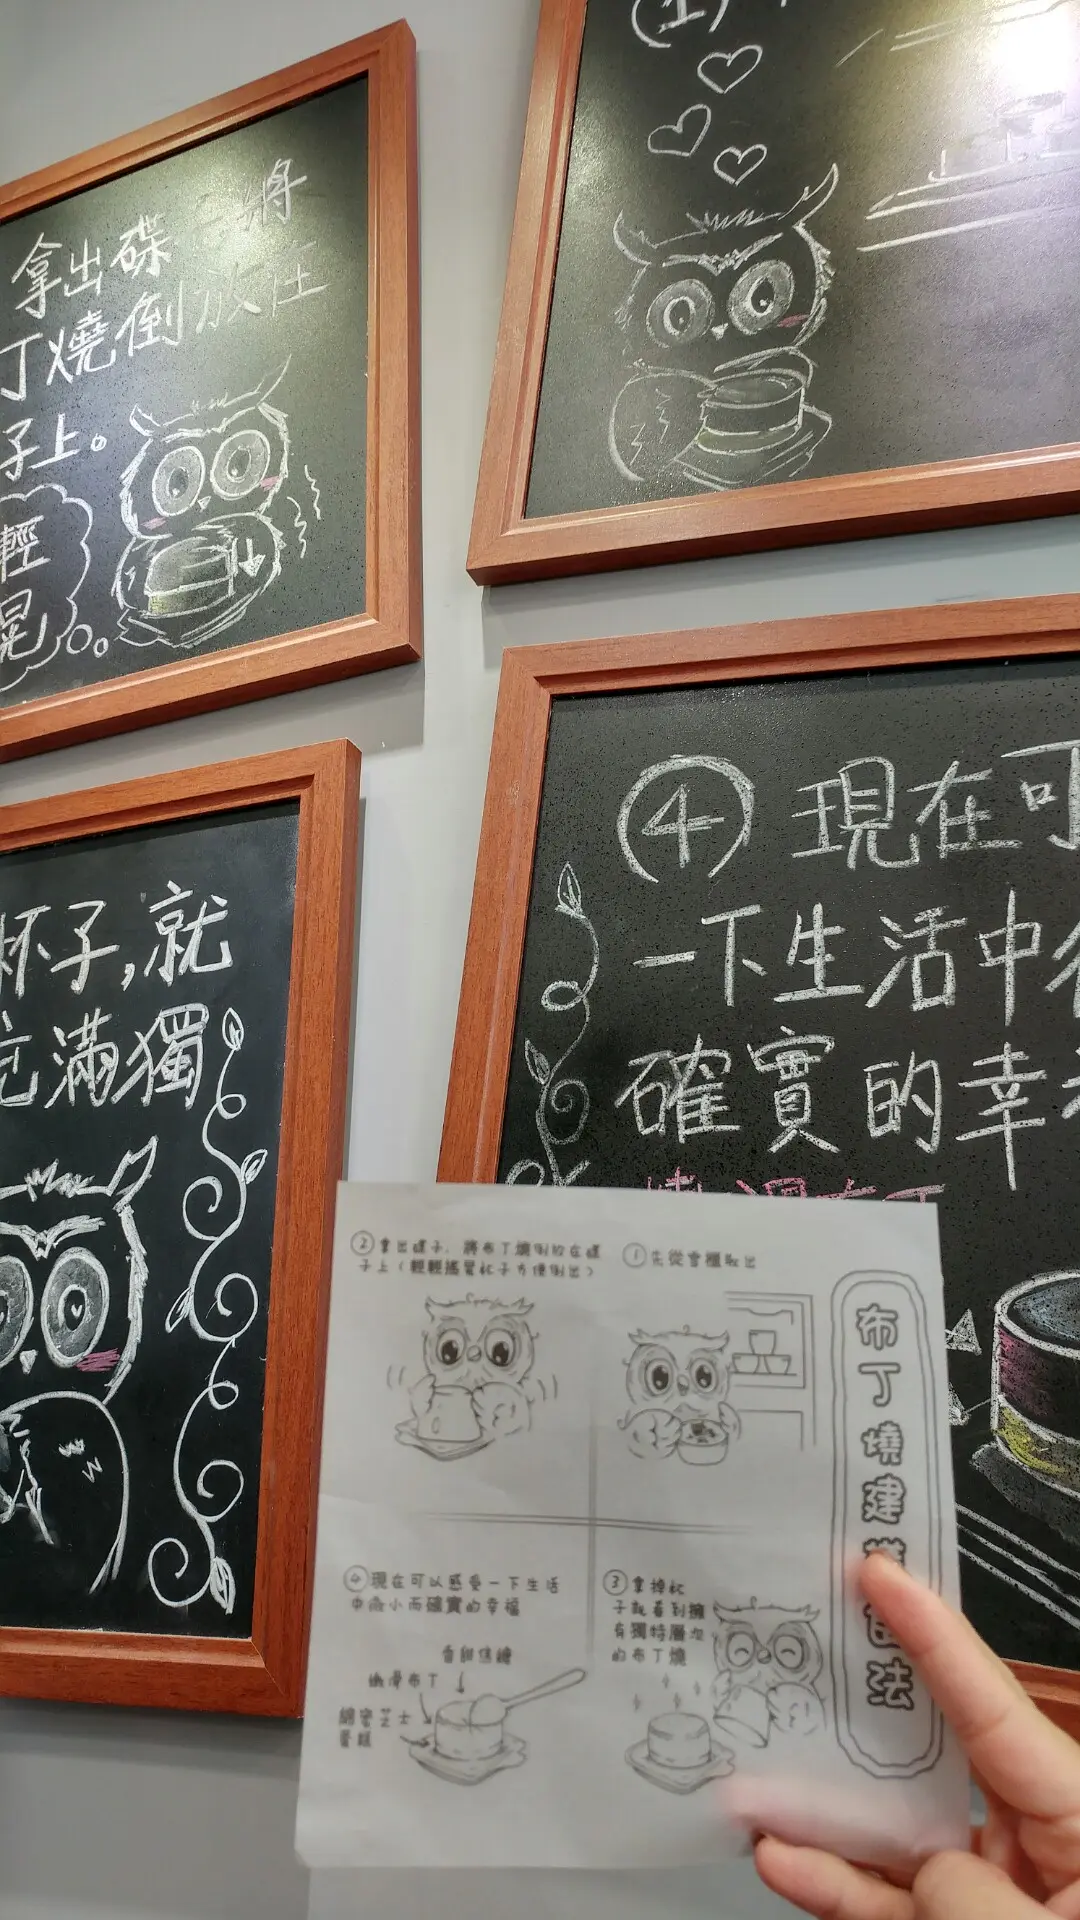 拿出碟 將
丁燒倒放在
子上。
輕
晃
(1)
杯子,就
充滿獨
④ 現在可
一下生活中
確實的幸
布丁燒建議
法
① 先從會櫃取出
② 拿出碟子, 將布丁燒倒放在碟
子上(輕輕搖晃杯子方便倒出)
③ 拿掉杯
子就看到擁
有獨特層次
的布丁燒
④ 現在可以感受一下生活
中微小而確實的幸福
香甜焦糖
嫩滑布丁
綿密芝士
蛋糕